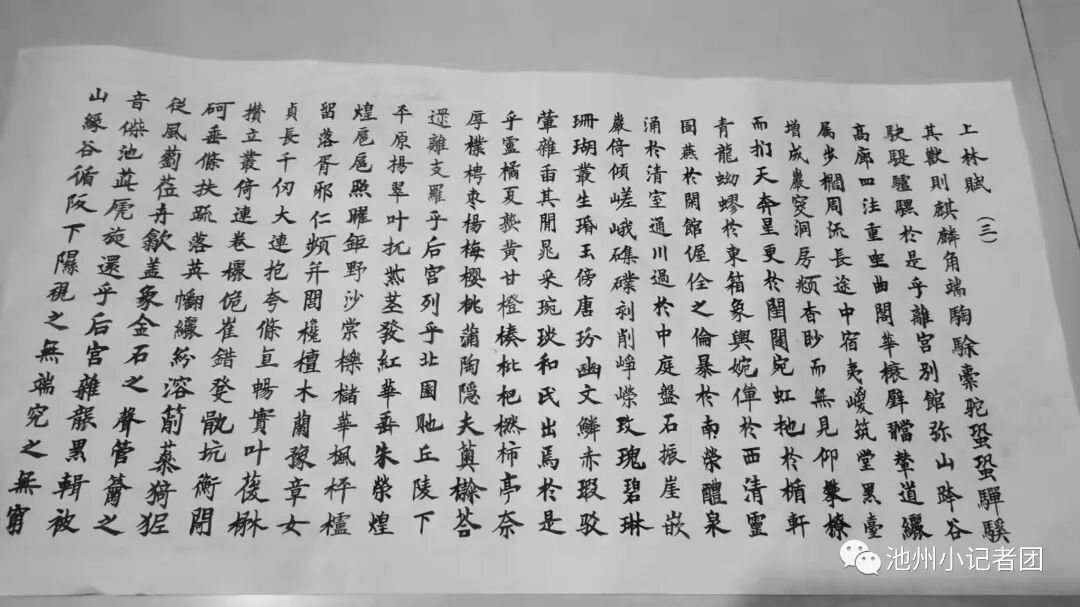 上林賦（三）
其獸則麒麟角端騊駼橐駝蛩蛩驒騱
駃騠驢騾於是乎離宮别館弥山跨谷
高廊四注重坐曲閣華榱璧璫輦道纚
属步櫩周流長途中宿夷嵕筑堂累臺
增成巖窔洞房頫杳眇而無見仰攀橑
而捫天奔星更於閨闥宛虹拖於楯軒
青龍蚴蟉於東箱象輿婉僤於西清靈
圄燕於閑館偓佺之倫暴於南榮醴泉
涌於清室通川過於中庭盤石振崖嵌
巖倚傾嵯峨磼礏刻削崢嶸玫瑰碧琳
珊瑚叢生瑉玉傍唐玢豳文鱗赤瑕駁
犖雜臿其間晁采琬琰和氏出焉於是
乎盧橘夏熟黃甘橙楱枇杷橪柿亭奈
厚樸梬棗楊梅櫻桃蒲陶隱夫薁棣荅
遝離支羅乎后宮列乎北園貤丘陵下
平原揚翠叶扤紫莖發紅華垂朱榮煌
煌扈扈照曜鉅野沙棠櫟櫧華楓枰櫨
留落胥邪仁頻并閭欃檀木蘭豫章女
貞長千仞大連抱夸條直暢實叶葰楙
攢立叢倚連卷欐佹崔錯癹骫坑衡閜
砢垂條扶疏落英幡纚紛溶萷蔘猗狔
從風藰莅卉歙蓋象金石之聲管籥之
音偨池茈虒旋還乎后宮雜襲累輯被
山緣谷循阪下隰視之無端究之無窮
池州小记者团